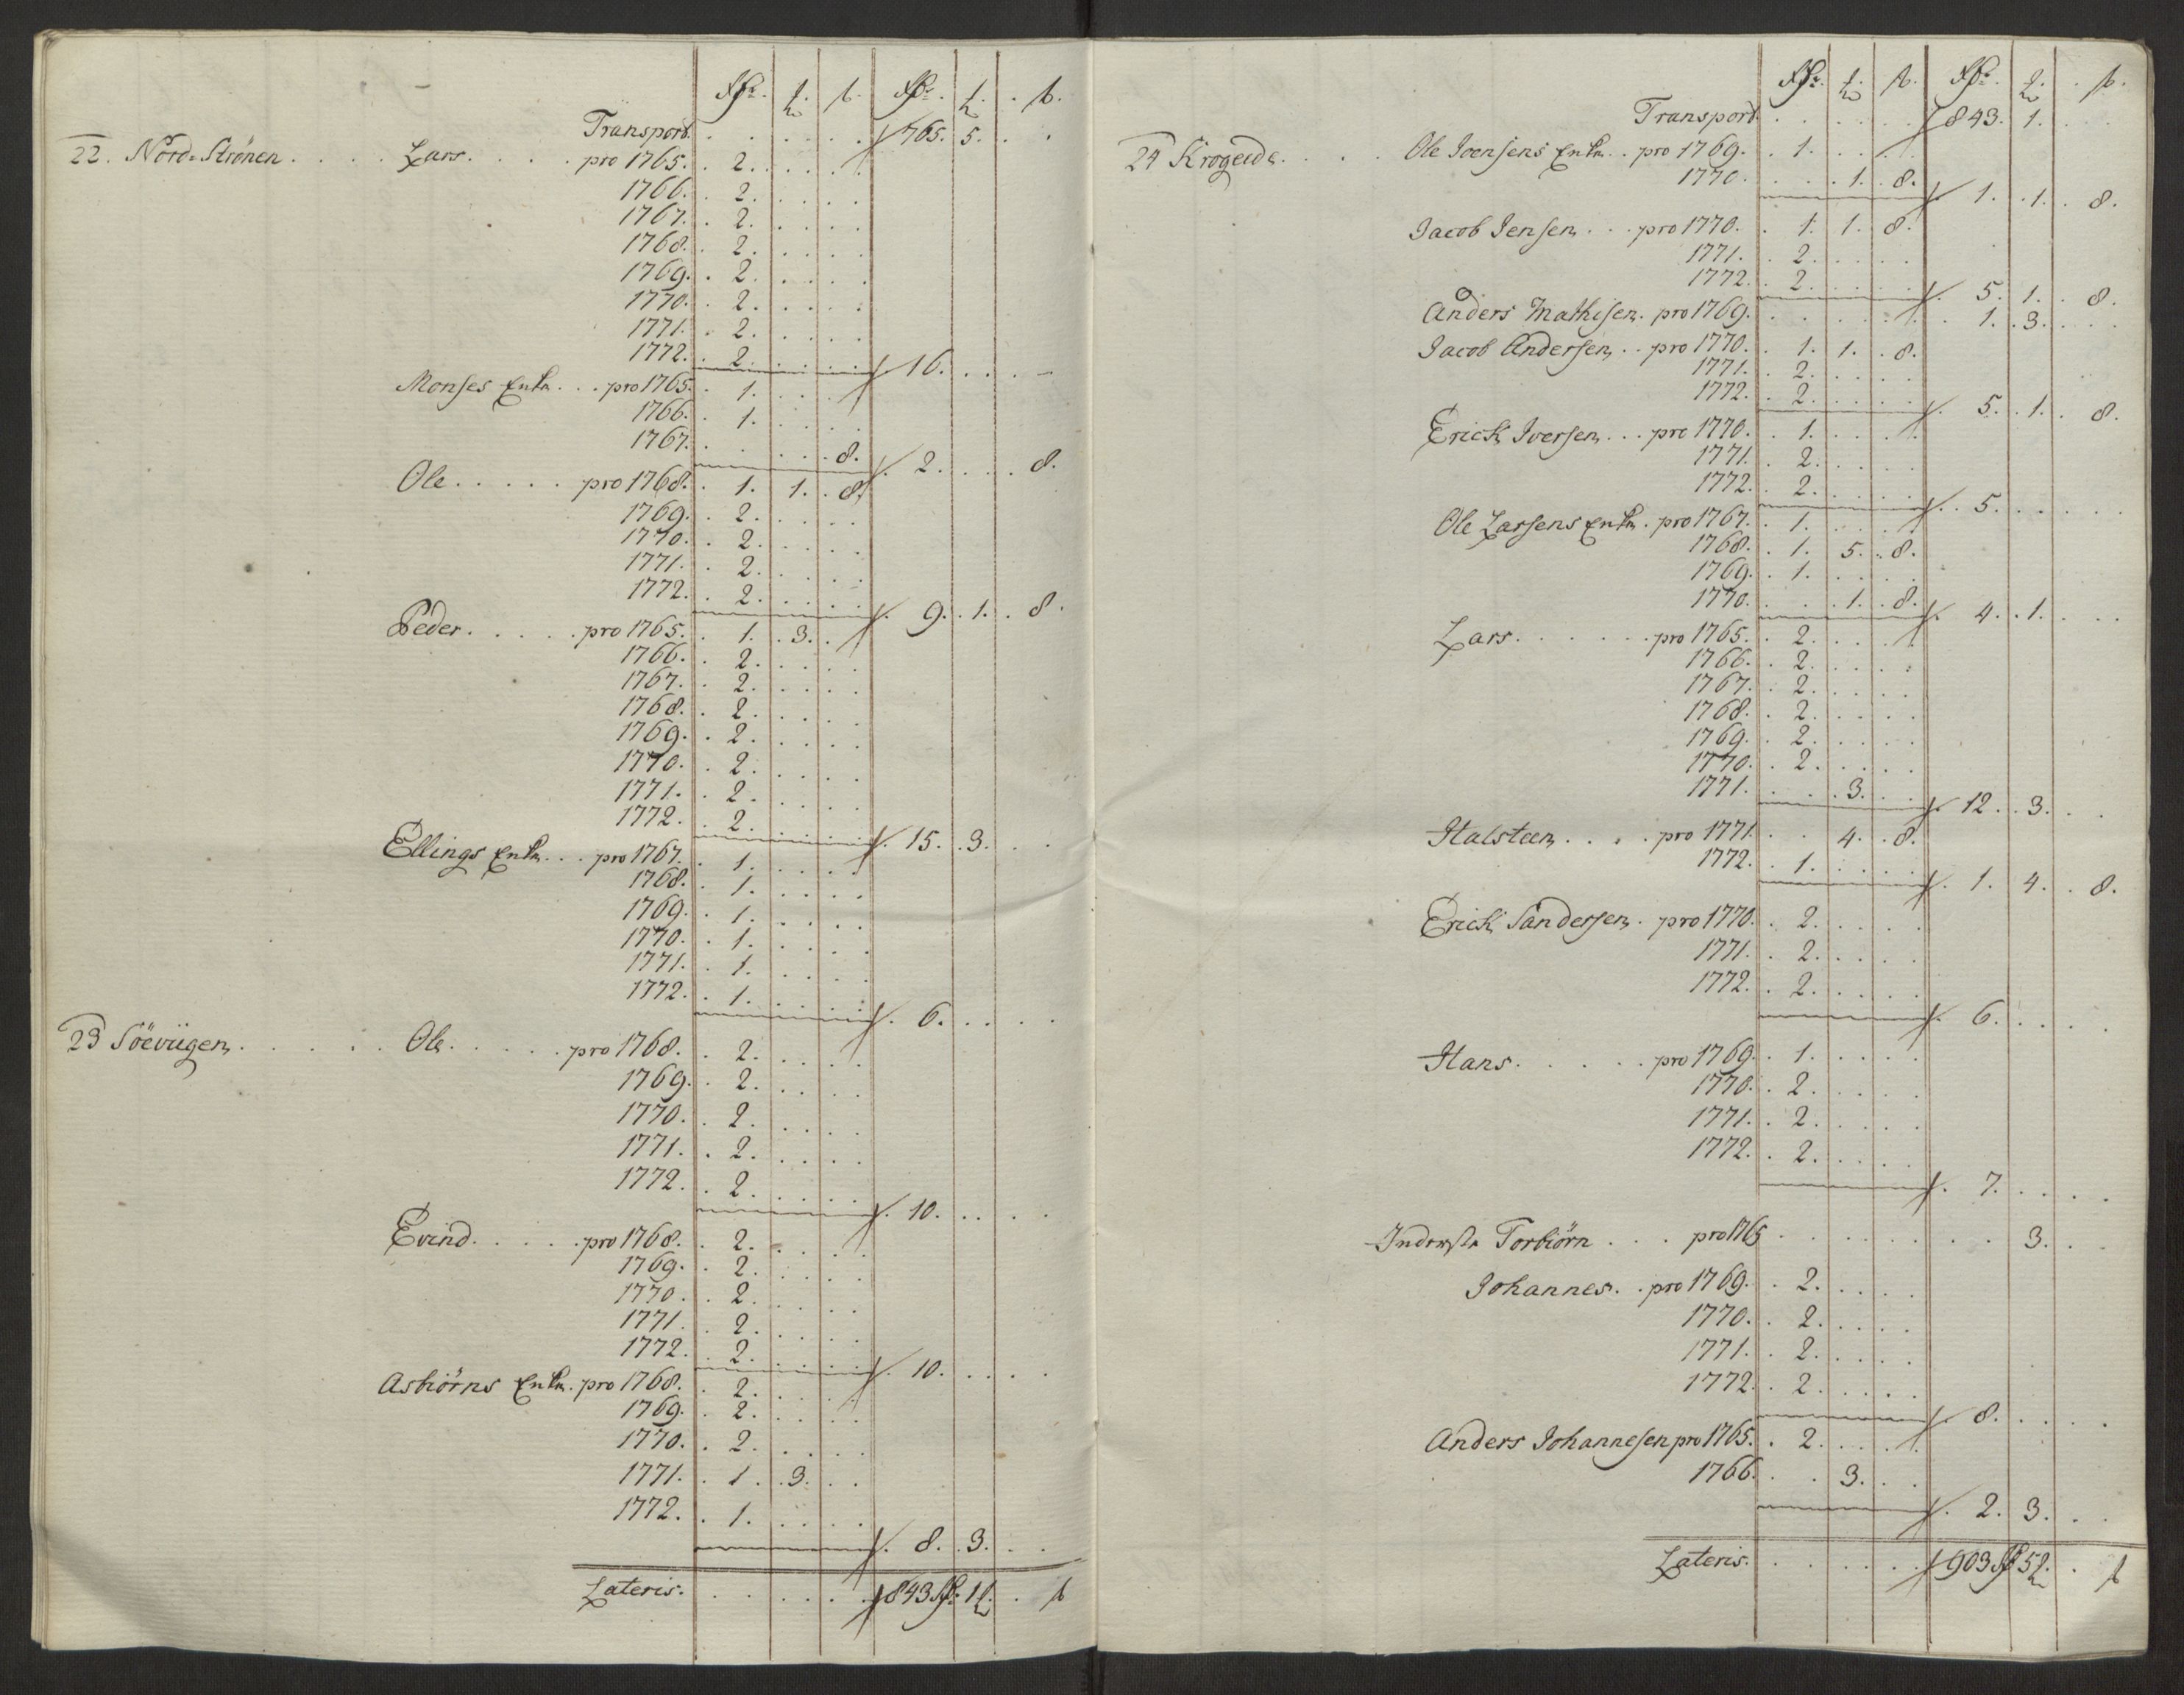 Rdr. ℔. ß. Rdr. ℔. ß.
Transport. . . . . . 765. 5. . .
22. Nord-Strönen . . . . Lars. . . . . pro 1765. . 2. . . . .
1766. . 2. . . . .
1767. . 2. . . . .
1768. . 2. . . . .
1769. . 2. . . . .
1770. . 2. . . . .
1771. . 2. . . . .
1772. . 2. . . . . 16. . . . -
Monses Enke. . . pro 1765. . 1. . . . .
1766. . 1. . . . .
1767. . . . . 8. 2. . . . 8.
Ole. . . . . pro 1768. . 1. 1. . 8.
1769. . 2. . . . .
1770. . 2. . . . .
1771. . 2. . . . .
1772. . 2. . . . . 9. . 1. . 8.
Peder. . . . . pro 1765. . 1. . 3. .
1766. . 2. . . . .
1767. . 2. . . . .
1768. . 2. . . . .
1769. . 2. . . . .
1770. . 2. . . . .
1771. . 2. . . . .
1772. . 2. . . . . 15. . 3. . .
Ellings Enke. . . pro 1767. . 1. . . . .
1768. . 1. . . . .
1769. . 1. . . . .
1770. . 1. . . . .
1771. . 1. . . . .
1772. . 1. . . . . 6. . . . .
23 Söeviigen. . . . . . Ole. . . . . pro 1768. . 2. . . . .
1769. . 2. . . . .
1770. . 2. . . . .
1771. . 2. . . . .
1772. . 2. . . . . 10. . . . .
Evind. . . . . pro 1768. . 2. . . . .
1769. . 2. . . . .
1770. . 2. . . . .
1771. . 2. . . . .
1772. . 2. . . . . 10. . . . .
Asbiörns Enke. pro 1768. . 2. . . . .
1769. . 2. . . . .
1770. . 2. . . . .
1771. . 1. . 3. . .
1772. . 1. . . . . 8. . 3. . .
Lateris. . . . . . 843 Rdr. 1 ℔. . ß
Rdr. ℔. ß. Rdr. ℔. ß.
Transport. . . . . . 843. 1. . .
24 Krogeide. . . . Ole Ivensens Enke. . pro 1769. . 1. . . . .
1770. . . . 1. . 8. 1. . 1. . 8.
Jacob Jensen. . . pro 1770. . 1. 1. . 8.
1771. . 2. . . . .
1772. . 2. . . . . 5. 1. . 8.
Anders Mathisen. pro 1769. . . . . . . 1. . 3. . . .
Jacob Andersen. . pro 1770. . 1. 1. . 8.
1771. . 2. . . . .
1772. . 2. . . . . 5. . 1. . 8.
Erick Iversen. . . pro 1770. . 1. . . . .
1771. . 2. . . . .
1772. . 2. . . . . 5. . . . .
Ole Larsens Enke. pro 1767. . 1. . . . .
1768. . 1. 5. . 8.
1769. . 1. . . . .
1770. . . . 1. . 8. 4. . 1. . . .
Lars. . . . . . pro 1765. . 2. . . . .
1766. . 2. . . . .
1767. . 2. . . . .
1768. . 2. . . . .
1769. . 2. . . . .
1770. . 2. . . . .
1771. . . . 3. . . 12. . 3. . .
Halsteen. . . . pro 1771. . . 4. . 8.
1772. . 1. . . . . 1. 4. . 8.
Erick Sandersen. pro 1770. . 2. . . . .
1771. . 2. . . . .
1772. . 2. . . . . 6. . . . .
Hans. . . . . pro 1769. . 1. . . . .
1770. . 2. . . . .
1771. . 2. . . . .
1772. . 2. . . . . 7. . . . .
Inderste Torbiörn . . . pro 1765 . . . . . . . . 3. . .
Johannes. . pro 1769. . 2. . . . .
1770. . 2. . . . .
1771. . 2. . . . .
1772. . 2. . . . . 8. . . . .
Anders Johannesen pro 1765. . 2. . . . .
1766. . . 3. . . 2. 3. . .
Lateris. . . . . . 903 Rdr 5 ℔. . ß